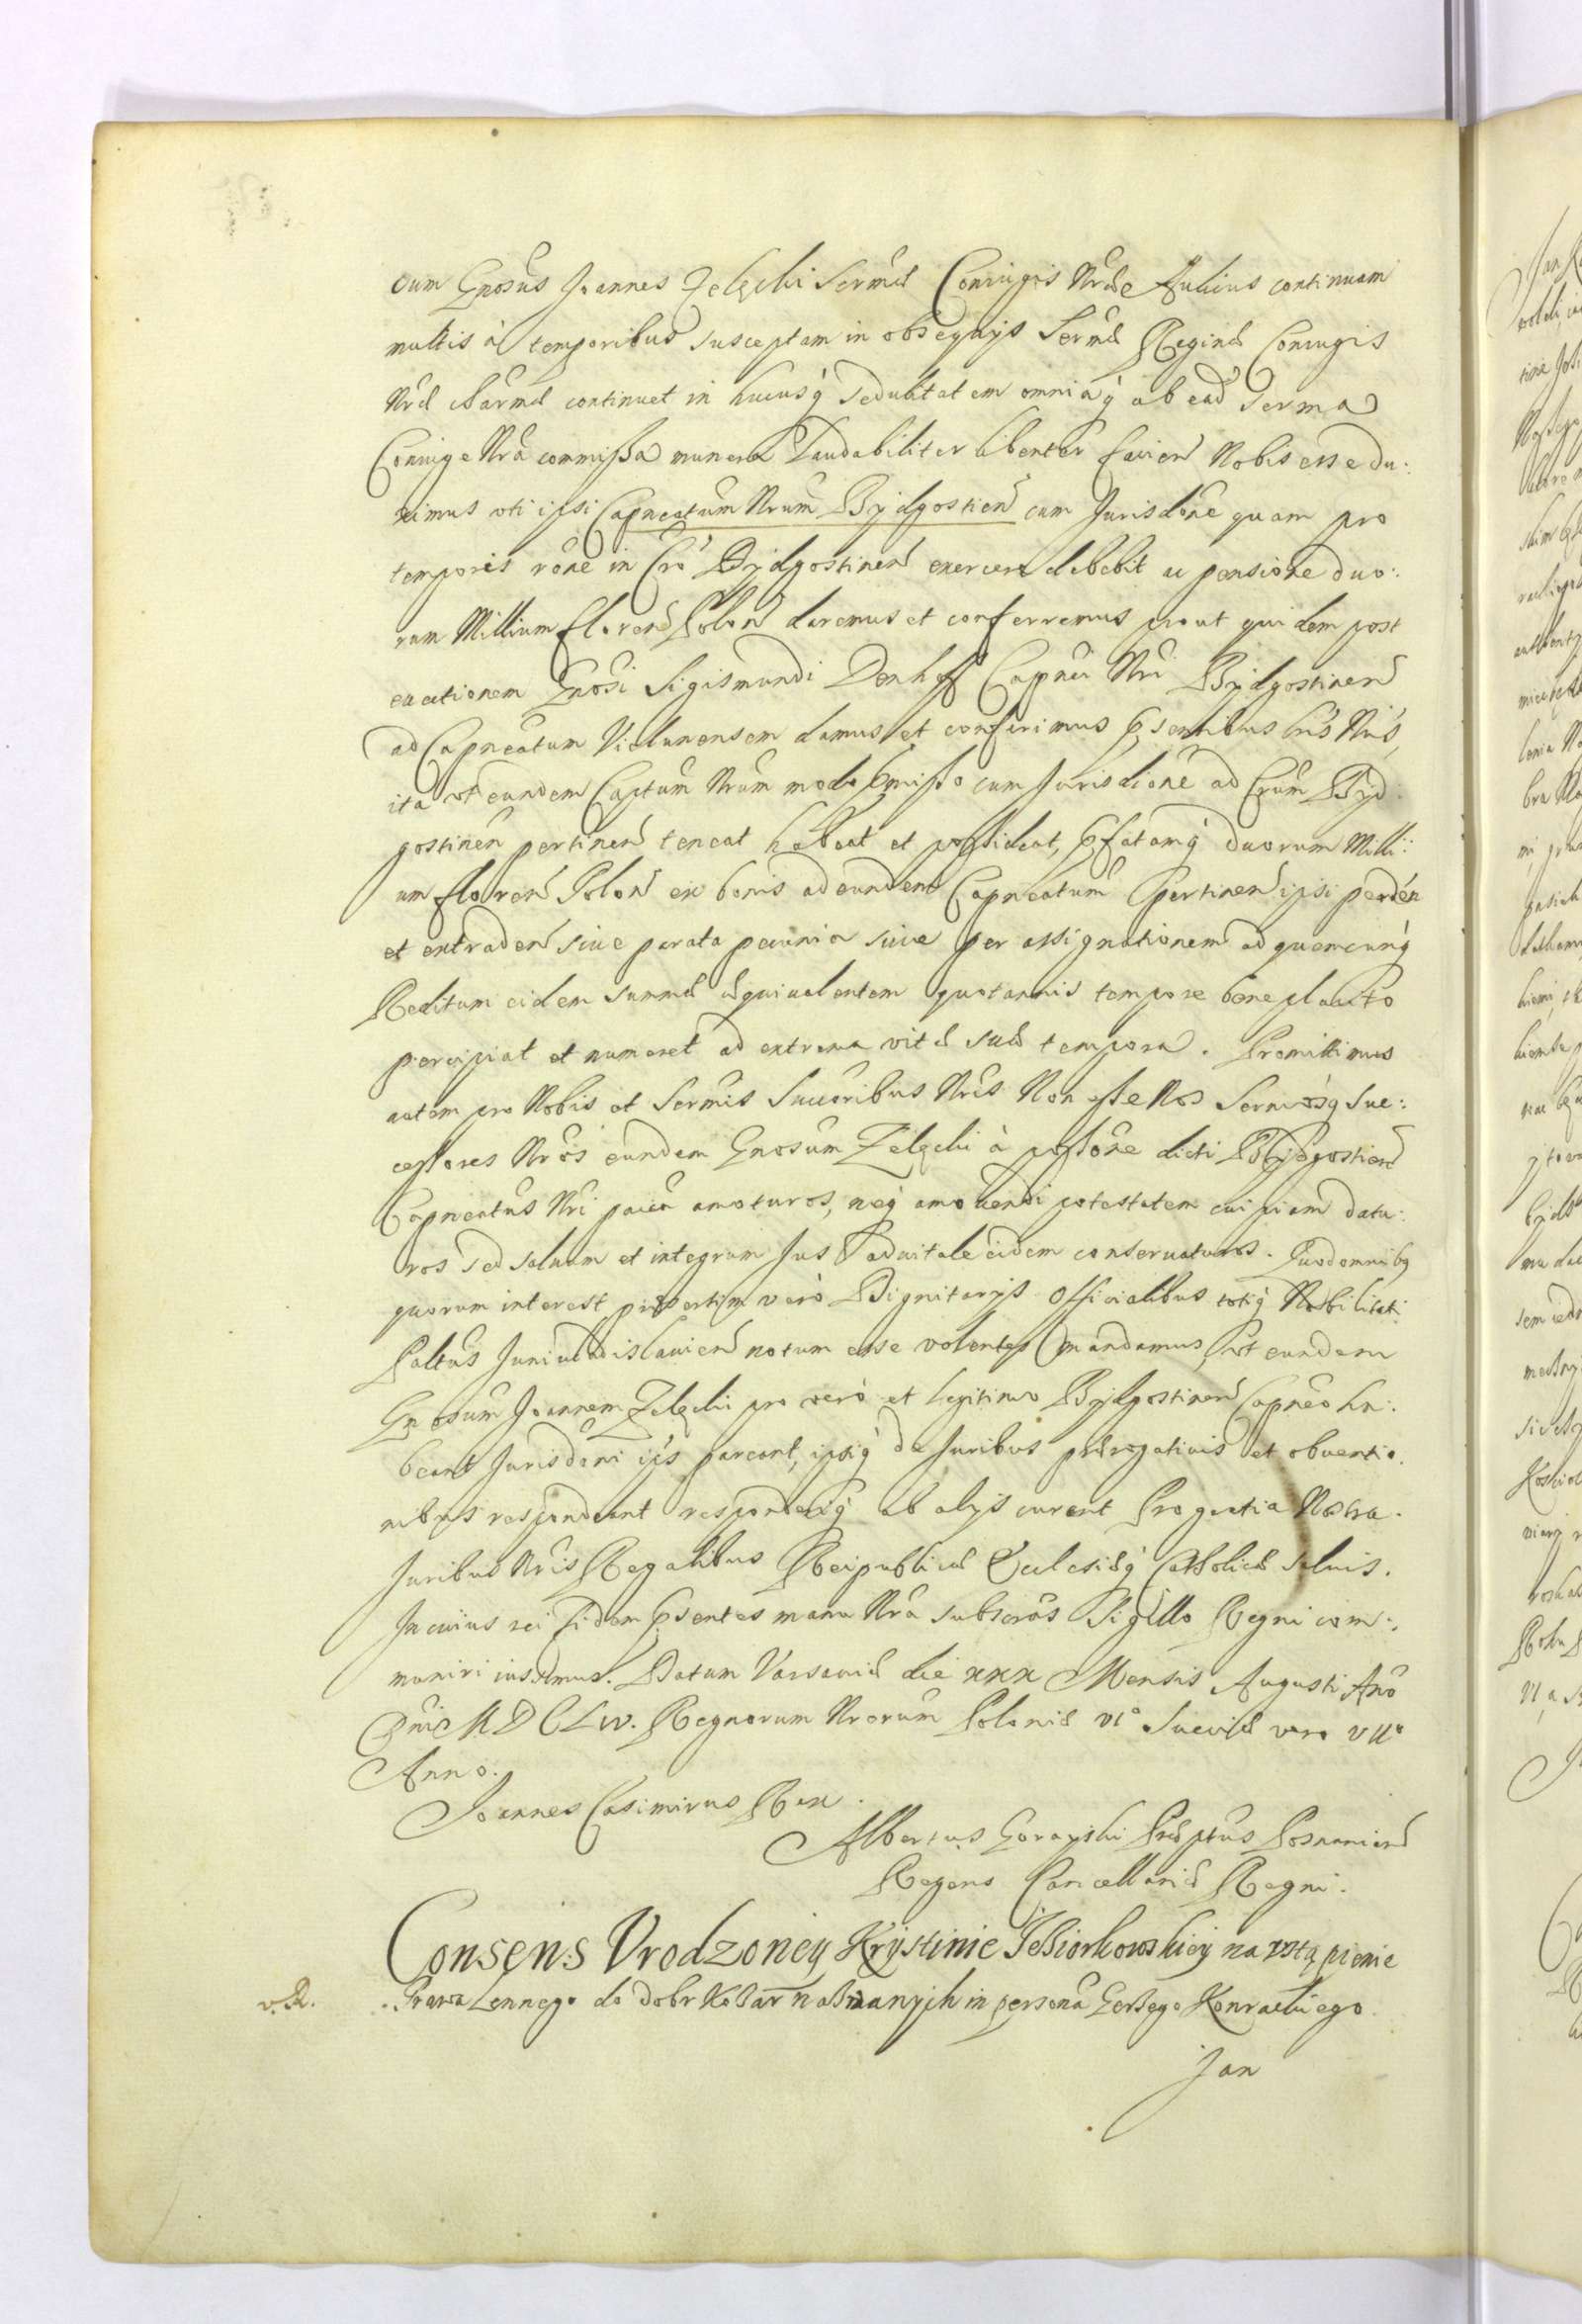 Cum Gnosus Joannes Zelęcki Sermæ Coniugis Nræ Aulicus continuam
multis à temporibus susceptam in obsequijs Sermæ Reginæ Coniugis
Nræ Charmæ continuet in hucusq́ sedulitatem omniaq́ ab ead Serma
Coniuge Nrã commissa munera laudabiliter libenter faciendũ Nobis esse du:
ximus vti ipsi Capneatum Nrum Bydgostien̄ cum Jurisdōne quam pro
temporis rōne in Crō Bydgostinen̄ exercere debebit ac pensione duo:
rum Millium floren̄ Polon̄ daremus et conferremus prout quidem post
cessionem Gnosi Sigismundi Denhoff Capnei Nri Bydgostinen̄
ad Capneatum Vielunensem damus et conferimus psentibus lris Nris,
ita vt eundem Captum Nrum modo pmisso cum Jurisdictione ad Crum Byd:
gostinen̄ pertinen̄ teneat habeat et possideat, pfatamq́ duorum Milli:
um floren̄ Polon̄ ex bonis ad eundem Capneatum pertinen̄ ipsi penden̄
et extraden̄ siue parata pecunia siue per assignationem ad quemcunq́
Reditum eidem summæ æquiualentem quotannis tempore beneplacito
percipiat et numeret ad extrema vitæ suæ tempora. Promittimus
autem pro Nobis et Sermis Succoribus Nris Non esse Nos Sermosq́ Suc:
cessores Nros eundem Gnosum Zelęcki à possōne dicti Bydgostien̄
Capneatus Nri amoturos, neq́ amouendi potestatem cuipiam datu:
ros sed saluum et integrum Jus aduitale eidem conseruaturos. Quod omnibq
quorum interest præsertim verò Dignitarijs Officialibus totiq́ Nobilitati
Paltus Juniuladislauien̄ notum esse volentes mandamus, vt eundem
Gnosum Joannem Zelęcki pro vero et legitimo Bydgostinen̄ Capneo ha:
beant Jurisdōni ijs pareant, ipsiq́ de Juribus prærogatiuis et obuentio:
nibus respondeant responderiq́ ab alijs curent Pro gratia Nostra.
Juribus Nris Regalibus Reipublicæ Ecclesiæq́ Catholicæ saluis.
In cuius rei fidem psentes manu Nra subscras Sigillo Regni com:
muniri iussimus. Datum Varsauiæ die xxx Mensis Augusti Anō
Dni MDCLIV. Regnorum Nrorum Poloniæ VI° Sueciæ vero VII°
Anno.
Joannes Casimirus Rex.
Albertus Gorayski Præptus Posnanien̄
Regens Cancellariæ Regni.
Consens Vrodzoney Krystinie Jeziorkowskiey na vstąpienie
v.R. Prawa Lennego do dobr Kozar nazwanych in persona Gerzego Konrackiego.
Jan